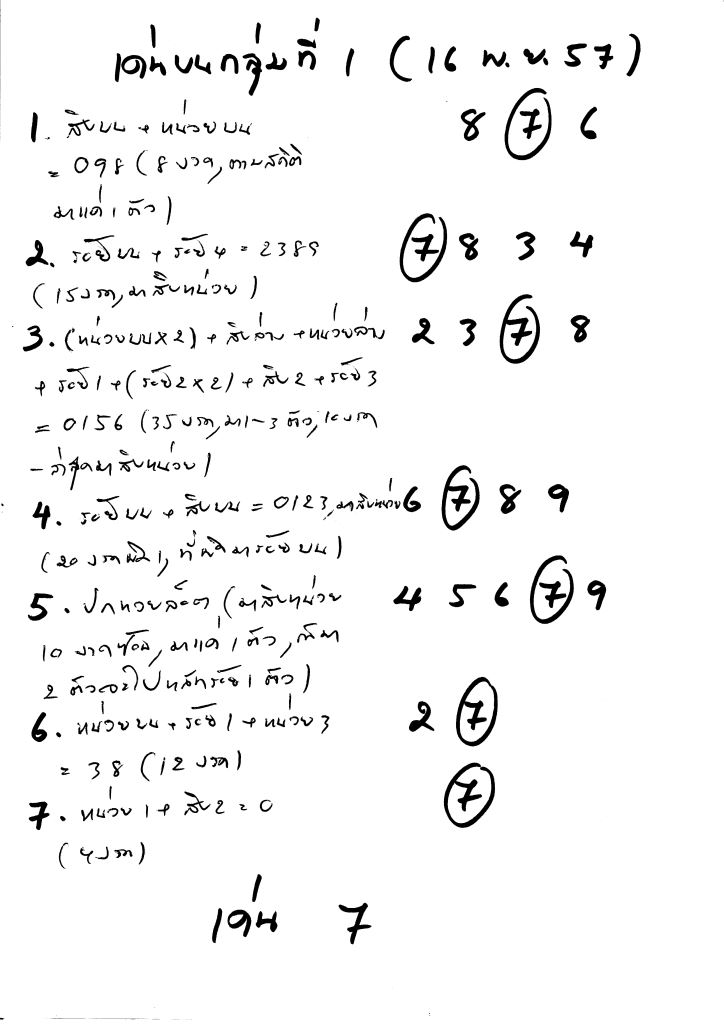 เด่นบนกลุ่มที่ 1 (16 พ.ย. 57)
1. สิบบน + หน่วยบน 8 7 6
= 098 (8 งวด, ตามสถิติ
มาแค่ 1 ตัว)
2. ร้อยบน + ร้อย 4 = 2389 7 8 3 4
(15 งวด, มาสิบหน่วย)
3. (หน่วยบน x 2) + สิบล่าง + หน่วยล่าง 2 3 7 8
+ ร้อย 1 + (ร้อย 2 x 2) + สิบ 2 + ร้อย 3
= 0156 (35 งวด, มา 1-3 ตัว, งวด
- ล่าสุดมาสิบหน่วย)
4. ร้อยบน + สิบบน = 0123, มาสิบหน่วย 6 7 8 9
(20 งวดผิด 1, ที่ผิดมาร้อยบน)
5. ปกหวยล็อต (มาสิบหน่วย 4 5 6 7 9
10 งวดซ้อน, มาแค่ 1 ตัว, ถ้ามา
2 ตัวจะไปหลักร้อย 1 ตัว)
6. หน่วยบน + ร้อย 1 + หน่วย 3 2 7
= 38 (12 งวด)
7. หน่วย 1 + สิบ 2 = 0 7
งวด)
เด่น 7